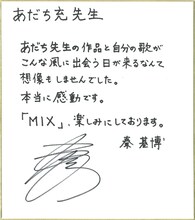 あだち充先生
あだち先生の作品と自分の歌が
こんな風に出会う日が来るなんて
想像もしませんでした。
本当に感動です。
「MIX」、楽しみにしております。
秦 基博